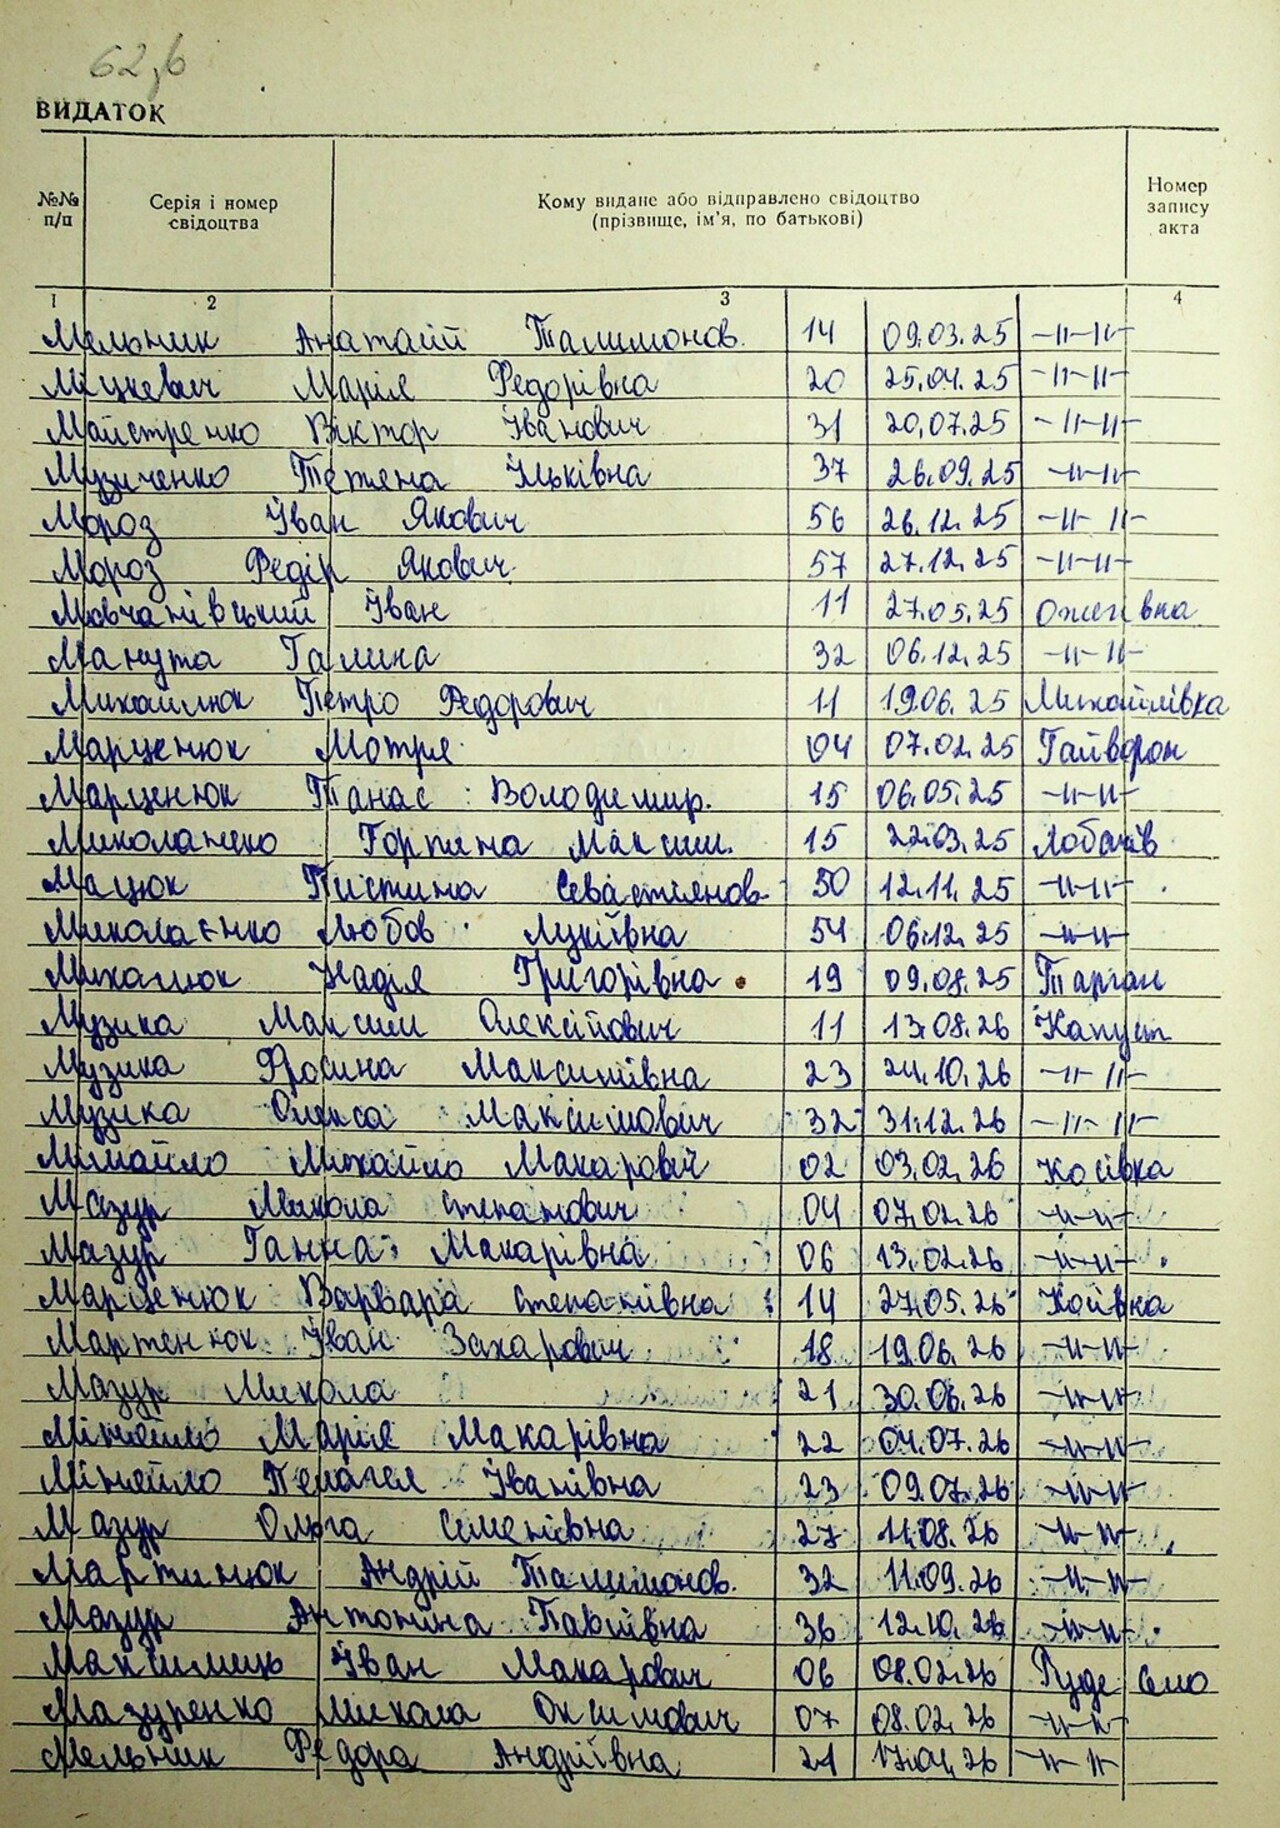 62,6
ВИДАТОК
№№ п/п Серія і номер свідоцтва Кому видане або відправлено свідоцтво (прізвище, ім'я, по батькові) Номер запису акта
1 2 3 4
Мельник Анатолій Талимонов. 14 09.03.25 -〃-〃-
Міцкевич Марія Федорівна 20 25.04.25 -〃-〃-
Майстренко Віктор Іванович 31 20.07.25 -〃-〃-
Музиченко Тетяна Ільківна 37 26.09.25 -〃-〃-
Мороз Іван Якович 56 26.12.25 -〃-〃-
Мороз Федір Якович 57 27.12.25 -〃-〃-
Мовчанівський Іван 11 27.05.25 Ожегівка
Манута Галина 32 06.12.25 -〃-〃-
Михайлюк Петро Федорович 11 19.06.25 Михайлівка
Марценюк Мотря 04 07.02.25 Гайворон
Марценюк Танас Володимир. 15 06.05.25 -〃-〃-
Миколаненко Горпина Максим. 15 22.03.25 Лобачів
Мацюк Пистина Севастіянов. 50 12.11.25 -〃-〃-
Миколаєнко Любов Лукіївна 54 06.12.25 -〃-〃-
Надія Григорівна 19 09.08.25 Тарган
Музика Максим Олексійович 11 13.08.26
Музика Фросина Максимівна 23 24.10.26 -〃-〃-
Музика Олекса Максимович 32 31.12.26 -〃-〃-
Михайло Макарович 02 03.02.26 Косівка
Мазур Микола Степанович 04 07.02.26 -〃-〃-
Мазур Ганна Макарівна 06 13.02.26 -〃-〃-
Марценюк Варвара Степанівна 14 27.05.26 Косівка
Мартенюк Іван Захарович 18 19.06.26 -〃-〃-
Мазур Микола 21 30.06.26 -〃-〃-
Міняйло Марія Макарівна 22 04.07.26 -〃-〃-
Міняйло Пелагея Іванівна 23 09.07.26 -〃-〃-
Мазур Ольга Семенівна 27 11.08.26 -〃-〃-
Мартинюк Андрій Талимонов. 32 11.09.26 -〃-〃-
Мазур Антоніна Павлівна 36 12.10.26 -〃-〃-
Іван Макарович 06 08.02.26 Руде село
Мазуренко Микола Оксимович 07 08.02.26 -〃-〃-
Мельник Федора Андріївна 21 17.04.26 -〃-〃-